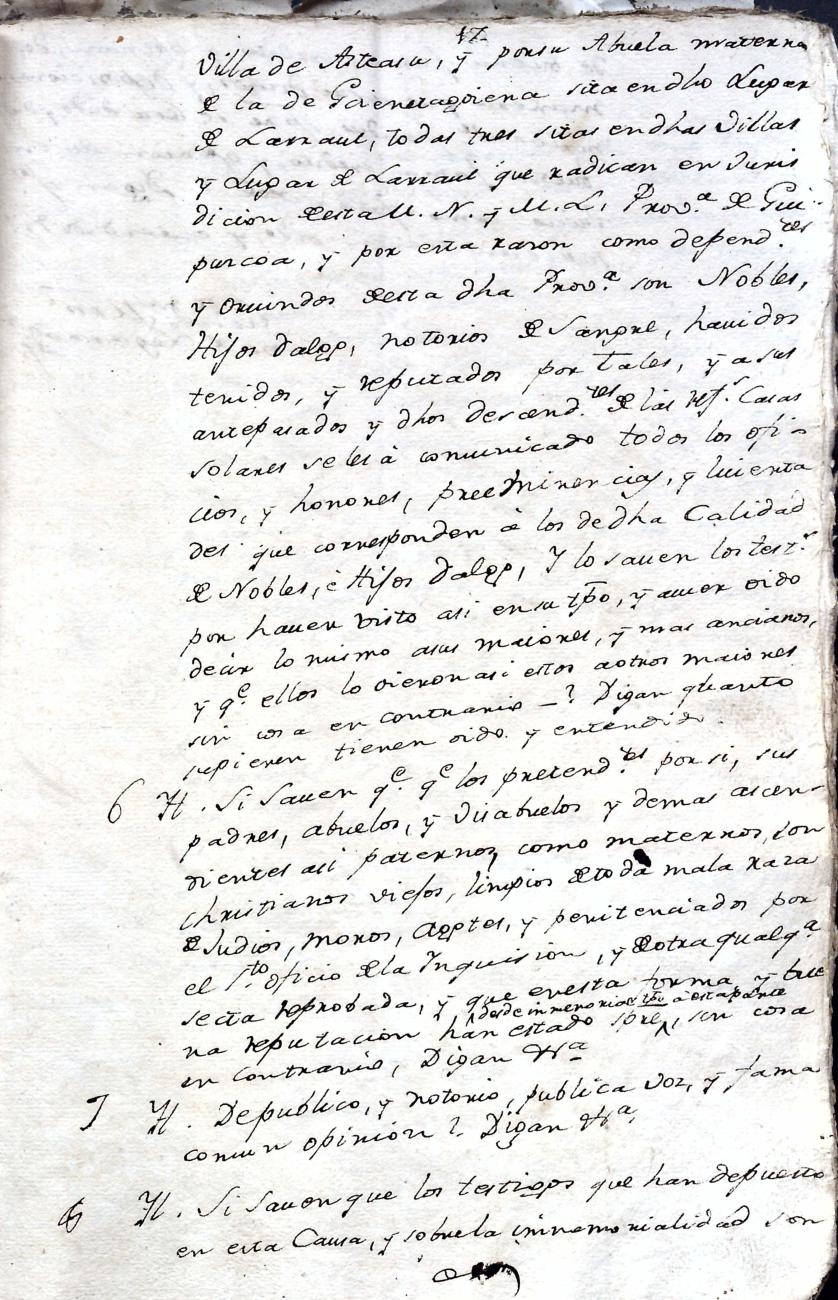 17
Villa de Asteasu, y por su Abuela materna
de la de Goienetagoiena sita en dho Lugar
de Larraul, todas tres sitas en dhas Villas
y Lugar de Larraul que radican en Juris
dicion de esta M. N. y M. L. Prov.ª de Gui-
puzcoa, y por esta razon como depend.tes
y oriundos de esta dha Prov.ª son Nobles,
Hijos dalgo, notorios de Sangre, havidos
tenidos, y reputados por tales, y a sus
antepasados y dhos descend.tes de las ref.s Casas
solares se les à comunicado todos los ofi-
cios, y honores, preeminencias, y
des que corresponden à los de dha Calidad
de Nobles, è Hijos dalgo, Y lo saven los test.s
por haver visto asi en su tpo, y aver oido
decir lo mismo a sus maiores, y mas ancianos,
y q.e ellos lo oieron asi estos a otros maiores
sin cosa en contrario -? Digan quanto
supieren tienen oido y entendido.
6 Yt. Si Saven q.e q.e los pretend.tes por si, sus
padres, abuelos, y visabuelos y demas ascen-
dientes asi paternos, como maternos, son
christianos viejos, limpios de toda mala raza
de Judios, moros, Agotes, y penitenciados por
el S.to oficio de la Inquision, y de otra qualq.ª
secta reprobada, y que en esta forma y bue
na reputacion han estado spre, desde inmemorial tpo à esta parte sin cosa
en contrario, Digan &ra
7 Yt. De publico, y notorio, publica voz, y fama
comun opinion? Digan &ra,
6 Yt. Si Saven que los testigos que han depuesto
en esta Causa, y sobre la inmemorialidad son